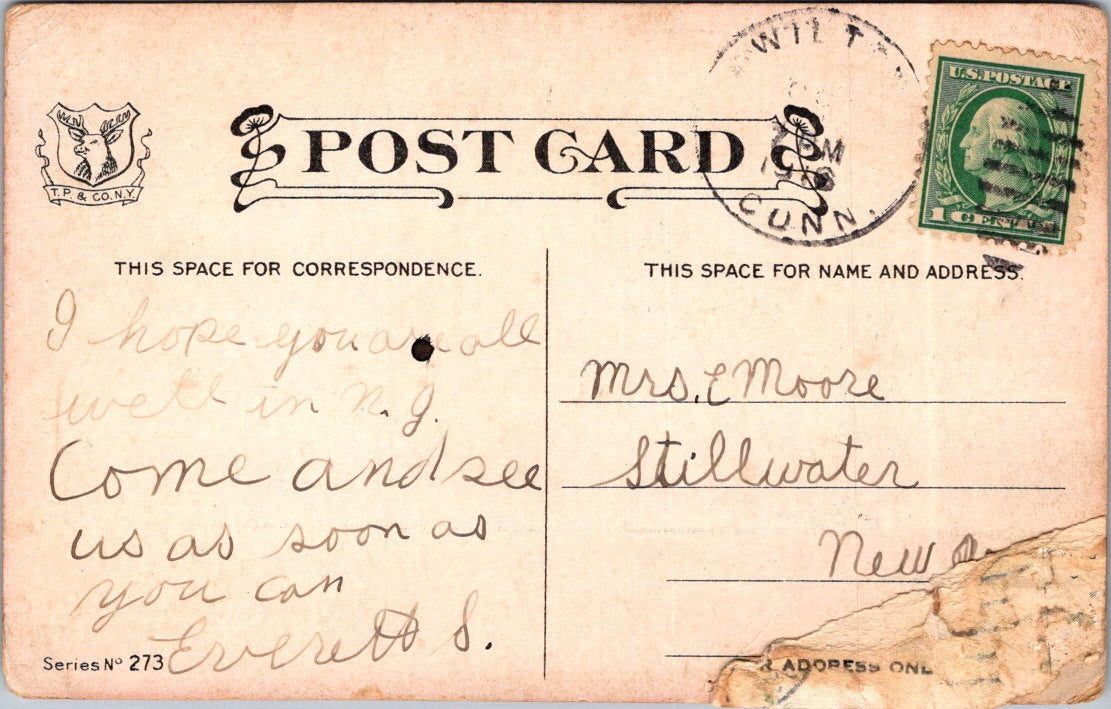 WILT
CONN.
U.S. POSTAGE
1 CENT
T. P. & CO. N.Y.
POST CARD
THIS SPACE FOR CORRESPONDENCE.
I hope you are all
well in N.J.
Come and see
us as soon as
you can
Everett S.
Series No 273
THIS SPACE FOR NAME AND ADDRESS.
Mrs. E Moore
Stillwater
New
ADDRESS ONL